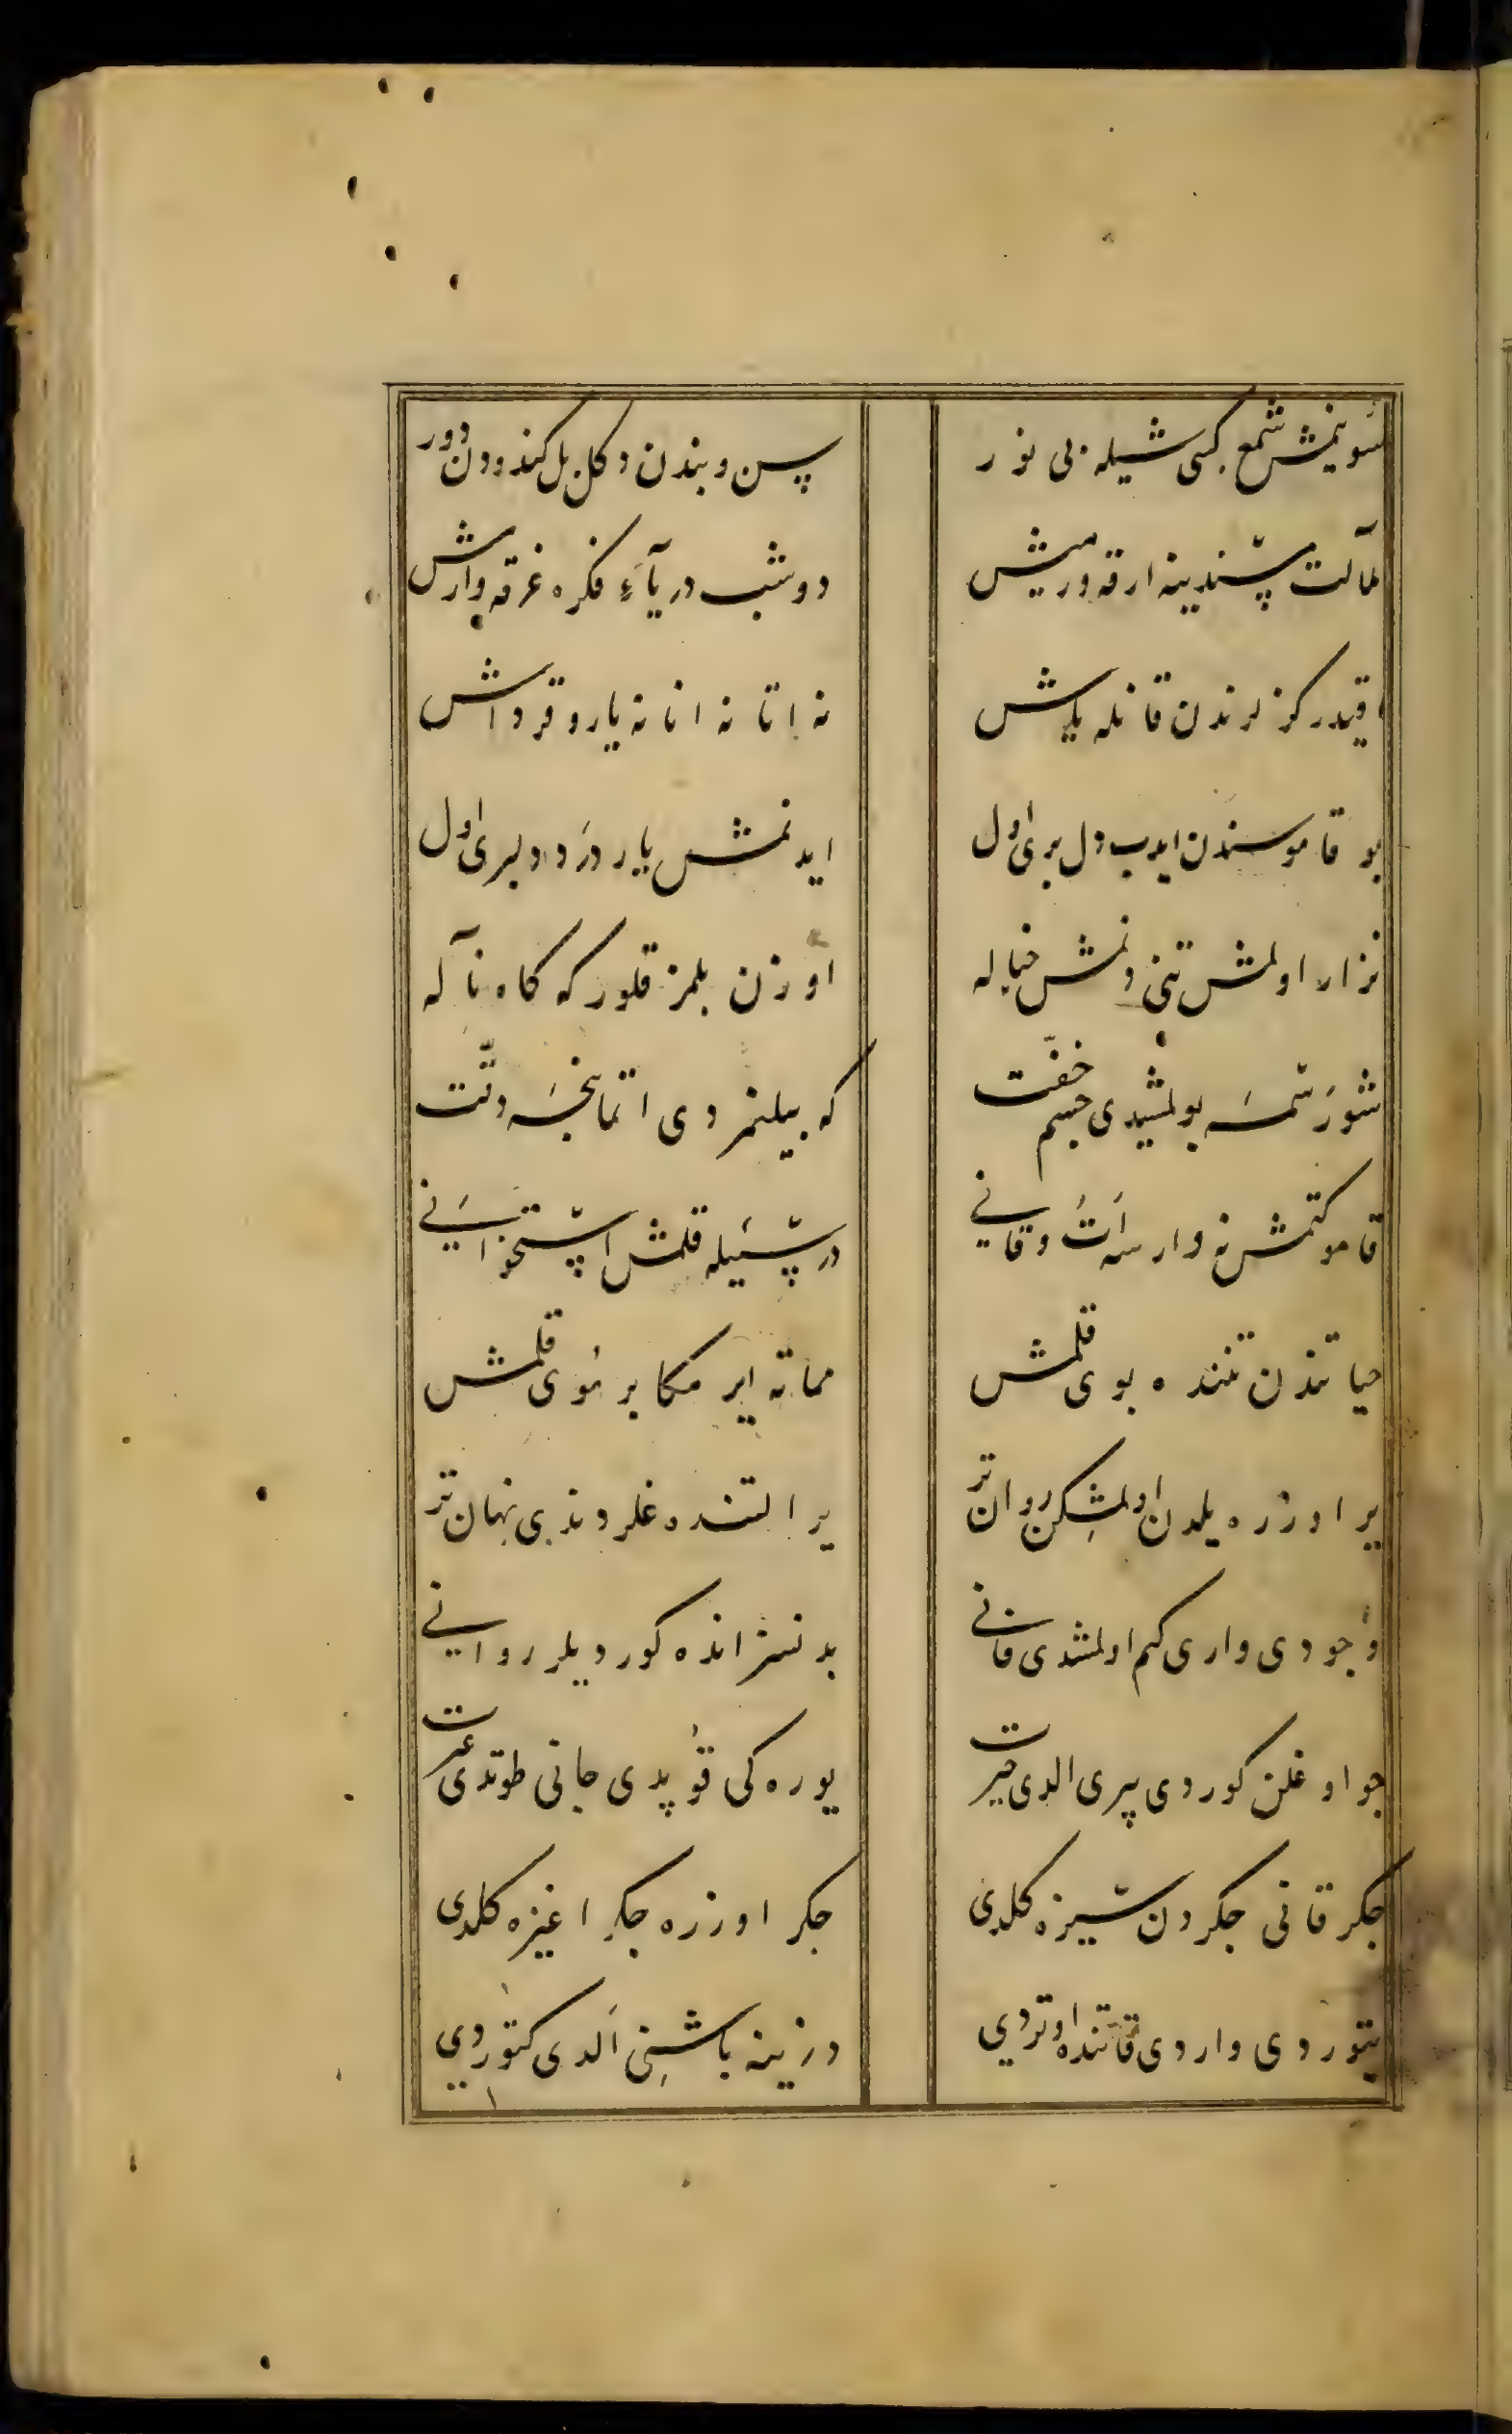 سوینمش شمع کبی شیله بی نور
پس و بندن دکل بل کندودن دور
ملآلت پسندینه ارقه ورمیش
دوشب دریآءِ فکره غرقه وارمش
اقیدر کزلرندن قانله یاش
نه اتا نه انا نه یار و قرداش
بو قاموسندن ایدب دل بری اول
ایدنمش یار درد دلبری اول
نزار اولمش تنی دونمش خیاله
اوزن بلمز قلور که کاه نآله
شورسمه بولمشیدی جسم خفّت
که بیلنمزدی اتماینجه دقّت
قامو کتمش نه وارسه اَت و قانی
دریسیله قلمش استخوانی
حیاتندن تننده بوی قلمش
مماته ایرمکا بر موی قلمش
یر اوزره یلدن اولمشکن روان تر
یر التنده غلردندی نهان تر
وجودی واری کم اولمشدی فانی
بدنسز انده کوردیلر روانی
جو اوغلن کوردی پیری الدی حیرت
یوره کی قوپدی جانی طوتدی عبرت
جکر قانی جکردن سیزه کلدی
جکر اوزره جکر اغیزه کلدی
یتوردی واردی قاتنده اوتردی
دزینه باشنی اَلدی کتوردی